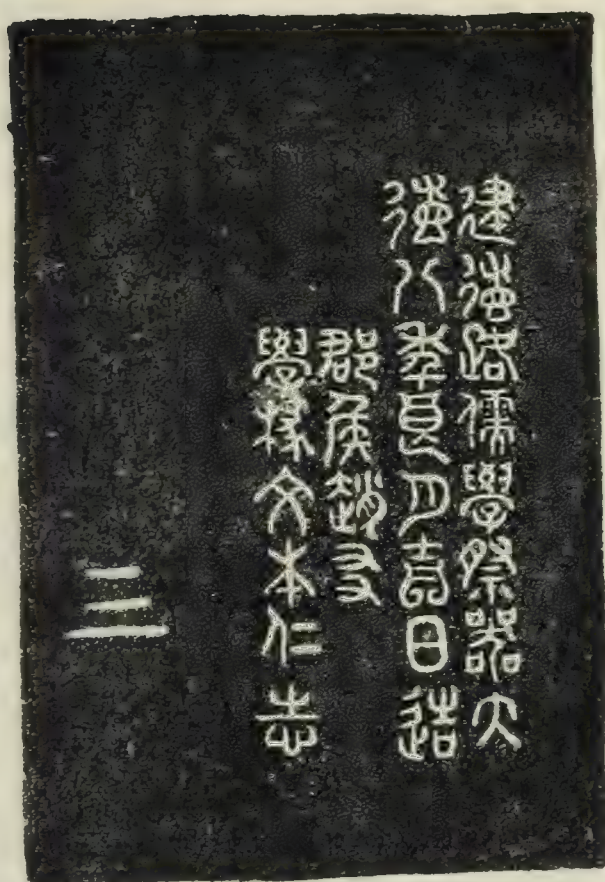 建德路儒學祭器大
德八年良月吉日造
郡侯趙友
學掾文本仁志
三